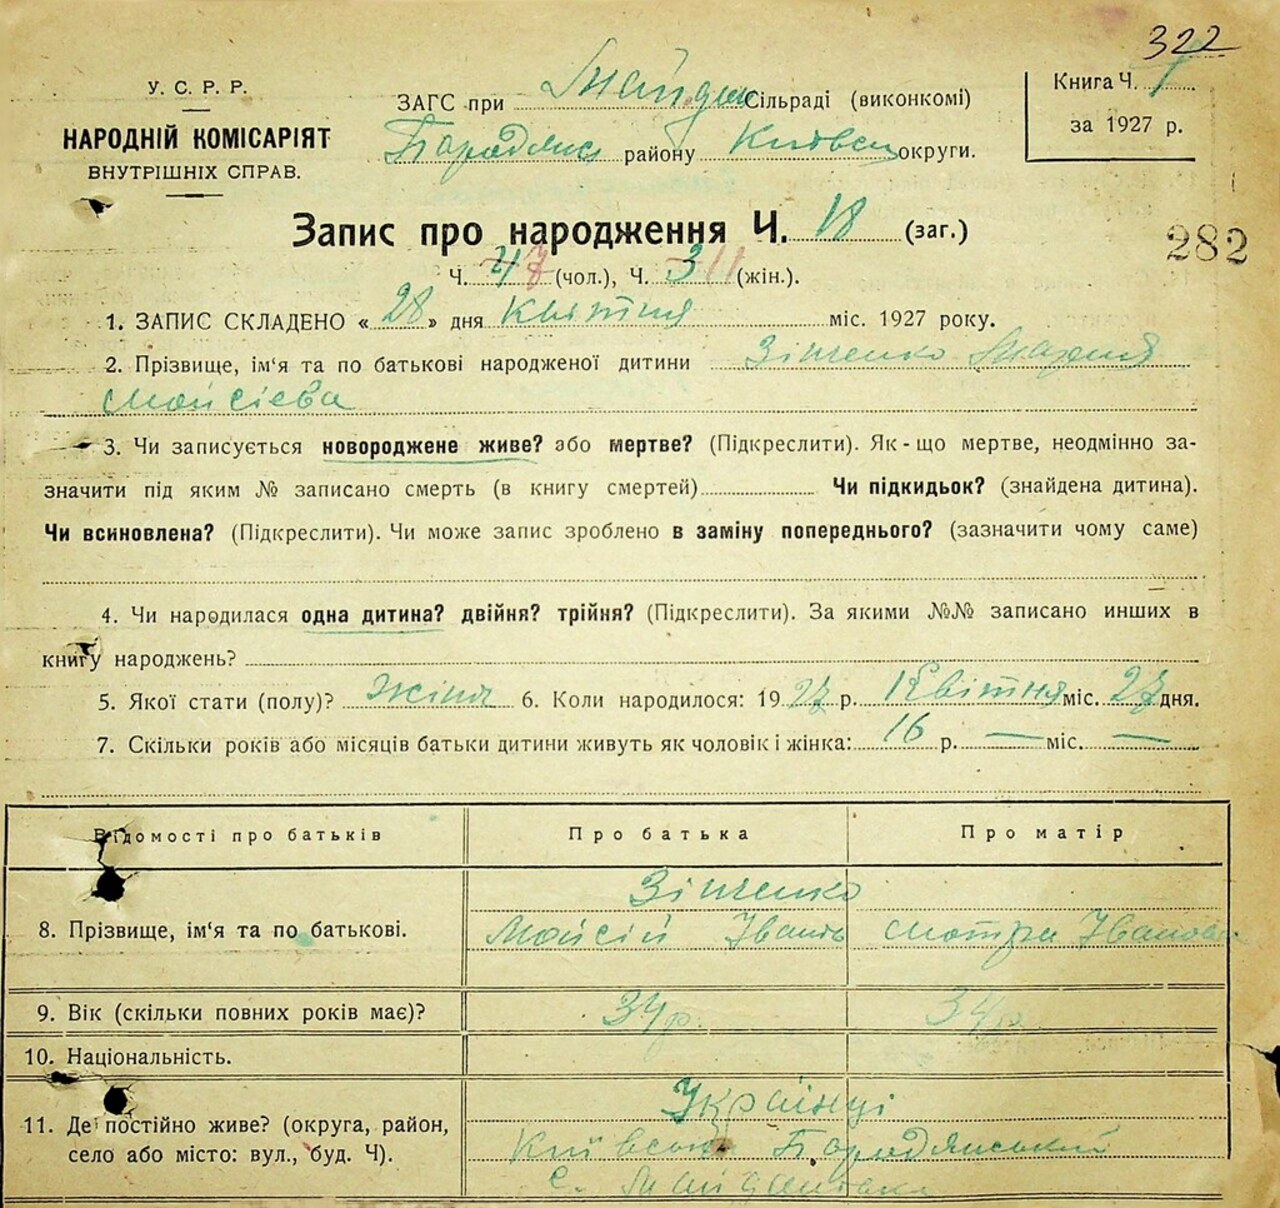 322
У. С. Р. Р.
НАРОДНІЙ КОМІСАРІЯТ
ВНУТРІШНІХ СПРАВ.
ЗАГС при Майдан Сільраді (виконкомі)
Бородянс району Київськ округи.
Книга Ч. 1
за 1927 р.
Запис про народження Ч. 18 (заг.)
282
Ч. 7 (чол.), Ч. 11 (жін.).
1. ЗАПИС СКЛАДЕНО « 28 » дня Квітня міс. 1927 року.
2. Прізвище, ім'я та по батькові народженої дитини Зінченко Марія
Мойсієва
3. Чи записується новороджене живе? або мертве? (Підкреслити). Як-що мертве, неодмінно за-
значити під яким № записано смерть (в книгу смертей) Чи підкидьок? (знайдена дитина).
Чи всиновлена? (Підкреслити). Чи може запис зроблено в заміну попереднього? (зазначити чому саме)
4. Чи народилася одна дитина? двійня? трійня? (Підкреслити). За якими №№ записано инших в
книгу народжень?
5. Якої стати (полу)? жіноч 6. Коли народилося: 1927 р. Квітня міс. 27 дня.
7. Скільки років або місяців батьки дитини живуть як чоловік і жінка: 16 р. — міс. —
Відомості про батьків Про батька Про матір
Зінченко
8. Прізвище, ім'я та по батькові. Мойсій Іванів Мотря Іванов
9. Вік (скільки повних років має)? 34 р. 34 р.
10. Національність.
Українці
11. Де постійно живе? (округа, район,
село або місто: вул., буд. Ч). Київської Бородянський
с. Майданівка